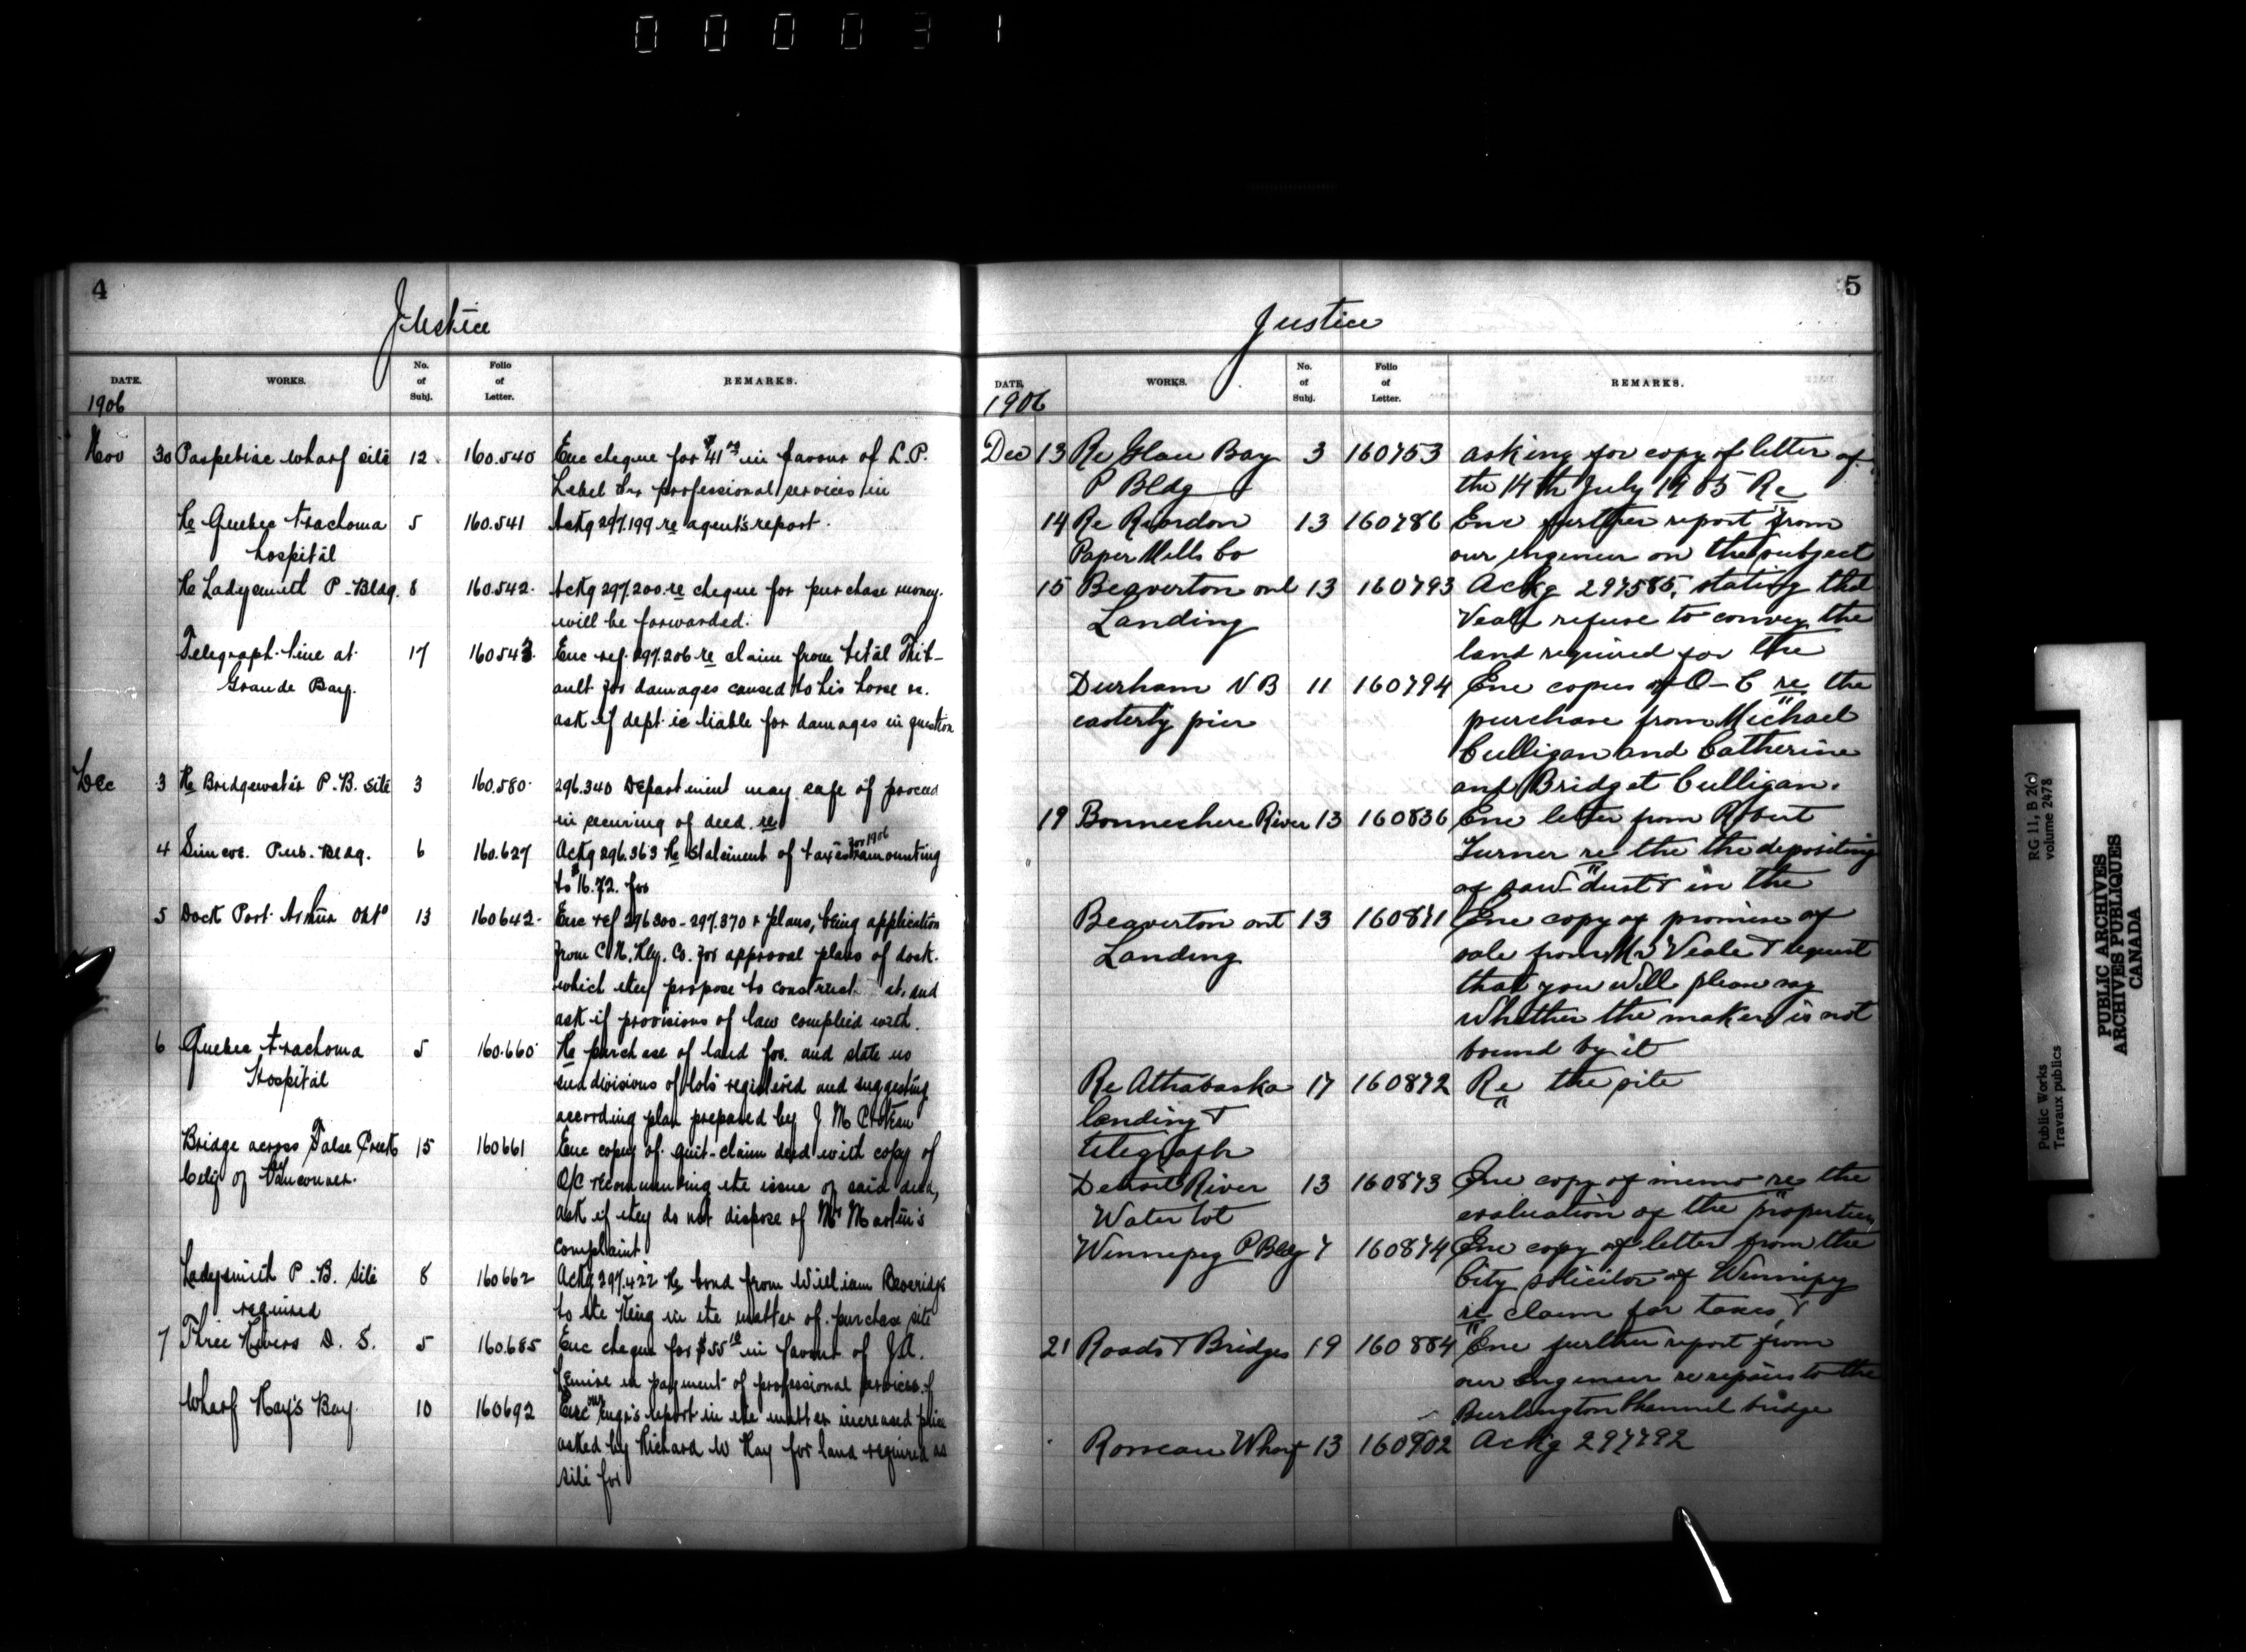 000031
4
Justice
DATE. WORKS. No. of Subj. Folio of Letter. REMARKS.
1906
Nov 30 Paspebiac wharf site 12 160.540 Enc cheque for $41 in favour of L.P.
Lebel for professional services in
Re Quebec trachoma 5 160.541 Ackg 297.199 re agent's report.
hospital
Re Ladysmith P-Bldg. 8 160.542 Ackg 297.200 re cheque for purchase money
will be forwarded.
Telegraph line at 17 160.543 Enc ref. 297.206 re claim from Vital Thib-
Grande Bay. ault for damages caused to his horse
ask if dept is liable for damages in question
Dec 3 Re Bridgewater P.B. site 3 160.580 296.340 Department may safe of proceed
in securing of deed re
4 Simcoe Pub. Bldg. 6 160.627 Ackg 296.363 Re statement of taxes for 1906 amounting
to $16.72 for
5 Dock Port Arthur Onto 13 160642 Enc ref 296300-297.370 & plans, being application
from C.N. Rly. Co. for approval plans of dock
which they propose to construct at, and
ask if provisions of law complied with.
6 Quebec trachoma 5 160.660 Re purchase of land for and state no
Hospital subdivisions of lots registered and suggesting
according plan prepared by J M
Bridge across False Creek 15 160661 Enc copy of quit-claim deed with copy of
City of Vancouver. O/C recommending the issue of said deed,
ask if they do not dispose of Mr Martin's
complaint
Ladysmith P.B. site 8 160662 Ackg 297.422 Re bond from William Beveridge
required to the King in the matter of purchase site
7 Three Rivers D. S. 5 160.685 Enc cheque for $55 10 in favour of J.A.
Lemire in payment of professional services of
Wharf Hay's Bay 10 160692 Enc our engr's report in the matter increased price
asked by Richard W Hay for land required as
site for
5
Justice
DATE. WORKS. No. of Subj. Folio of Letter. REMARKS.
1906
Dec 13 Re Glace Bay 3 160753 asking for copy of letter of
P Bldg the 14th July 1905 Re
14 Re Riordon 13 160786 Enc further report from
Paper Mills Co our engineer on the subject
15 Beaverton ont 13 160793 Ackg 297585, stating that
Landing Veale refuse to convey the
land required for the
Durham N B 11 160794 Enc copies of O-C re the
easterly pier purchase from Michael
Culligan and Catherine
and Bridget Culligan.
19 Bonnechere River 13 160836 Enc letter from Robert
Turner re the the depositing
of saw dust & in the
Beaverton ont 13 160871 Enc copy of promise of
Landing sale from Mr Veale & request
that you will please say
whether the maker is not
bound by it
Re Athabaska 17 160872 Re the site
landing &
telegraph
Detroit River 13 160873 Enc copy of memo re the
Water lot evaluation of the properties
Winnipeg P Bldg 7 160874 Enc copy of letter from the
City solicitor of Winnipeg
re claim for taxes &
21 Roads & Bridges 19 160884 Enc further report from
our engineer re repairs to the
Burlington Channel bridge
Rosseau Wharf 13 160902 Ackg 297792
Public Works
Travaux publics
RG 11, B 2(c)
volume 2478
PUBLIC ARCHIVES
ARCHIVES PUBLIQUES
CANADA